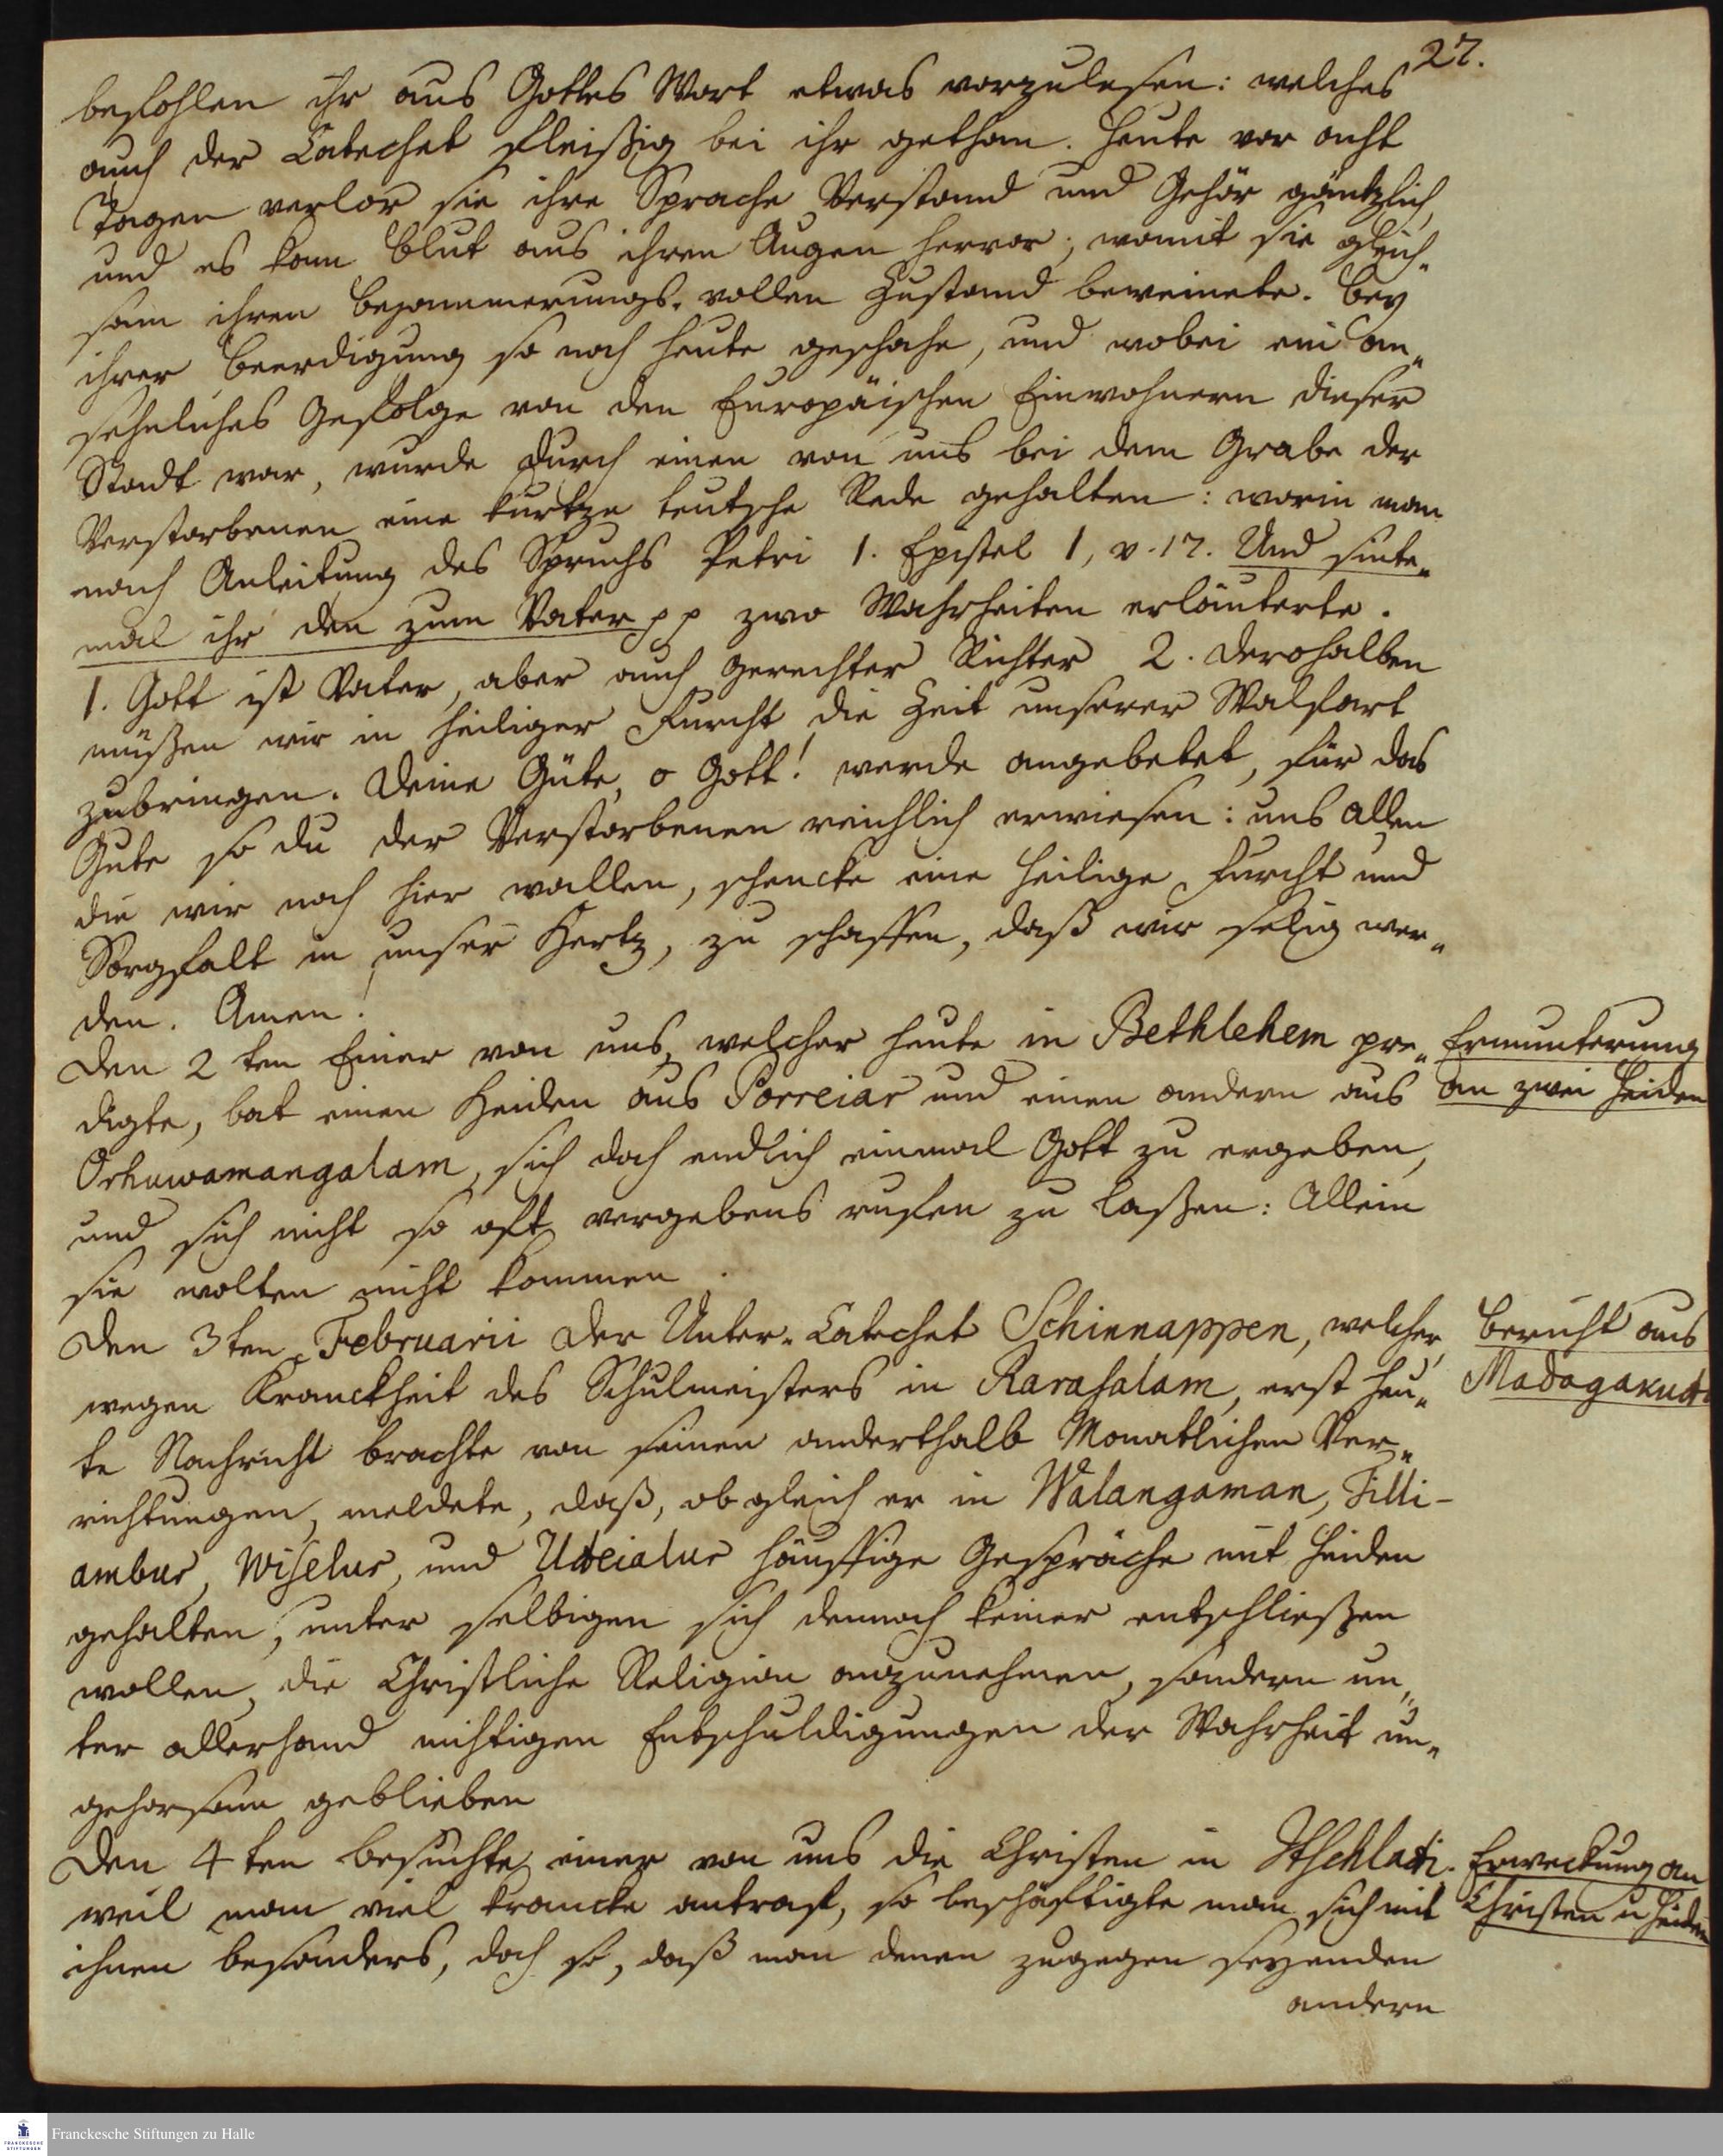 27.
befohlen ihr aus Gottes Wort etwas vorzulesen: welches
auch der Catechet fleißig bei ihr gethan. Heute vor acht
Tagen verlor sie ihre Sprache Verstand und Gehör gäntzlich,
und es kam Blut aus ihren Augen hervor; womit sie gleich„
sam ihren bejammerungs-vollen Zustand beweinete. Bey
ihrer Beerdigung so noch heute geschahe, und wobei ein an„
sehnliches Gefolge von den Europäischen Einwohnern dieser
Stadt war, wurde durch einen von uns bei dem Grabe der
Verstorbenen eine kurtze teutsche Rede gehalten: worin man
nach Anleitung des Spruchs Petri 1. Epistel 1, v. 17. Und sinte„
mal ihr den zum Vater pp zwo Wahrheiten erläuterte.
1. Gott ist Vater, aber auch gerechter Richter 2. Derohalben
müßen wir in heiliger Furcht die Zeit unserer Walfart
zubringen. Deine Güte, o Gott! werde angebetet, für das
Gute so du der Verstorbenen reichlich erwiesen: uns allen
die wir noch hier wallen, schencke eine heilige Furcht und
Sorgfalt in unser Hertz, zu schaffen, daß wir selig wer„
den. Amen!
Den 2 ten Einer von uns, welcher heute in Bethlehem pre„
digte, bat einen Heiden aus Porreiar und einen andern aus
Orhuwamangalam, sich doch endlich einmal Gott zu ergeben,
und sich nicht so oft vergebens rufen zu laßen: Allein
sie wolten nicht kommen.
Ermunterung
an zwei Heiden
Den 3 ten Februarii Der Unter-Catechet Schinnappen, welcher,
wegen Kranckheit des Schulmeisters in Rarasalam, erst heu„
te Nachricht brachte von seinen anderthalb Monatlichen Ver„
richtungen, meldete, daß, obgleich er in Walangaman, Filli-
ambur, Wiselur, und Udeialur häuffige Gespräche mit Heiden
gehalten, unter selbigen sich dennoch keiner entschließen
wollen, die Christliche Religion anzunehmen, sondern un„
ter allerhand nichtigen Entschuldigungen der Wahrheit un„
gehorsam geblieben
Bericht aus
Madagakudi
Den 4 ten besuchte einer von uns die Christen in
weil man viel krancke antraf, so beschäftigte man sich mit
ihnen besonders, doch so, daß man denen zugegen seyenden
andern
Erweckung an
Christen u Heiden
Franckesche Stiftungen zu Halle
FRANCKESCHE
STIFTUNGEN